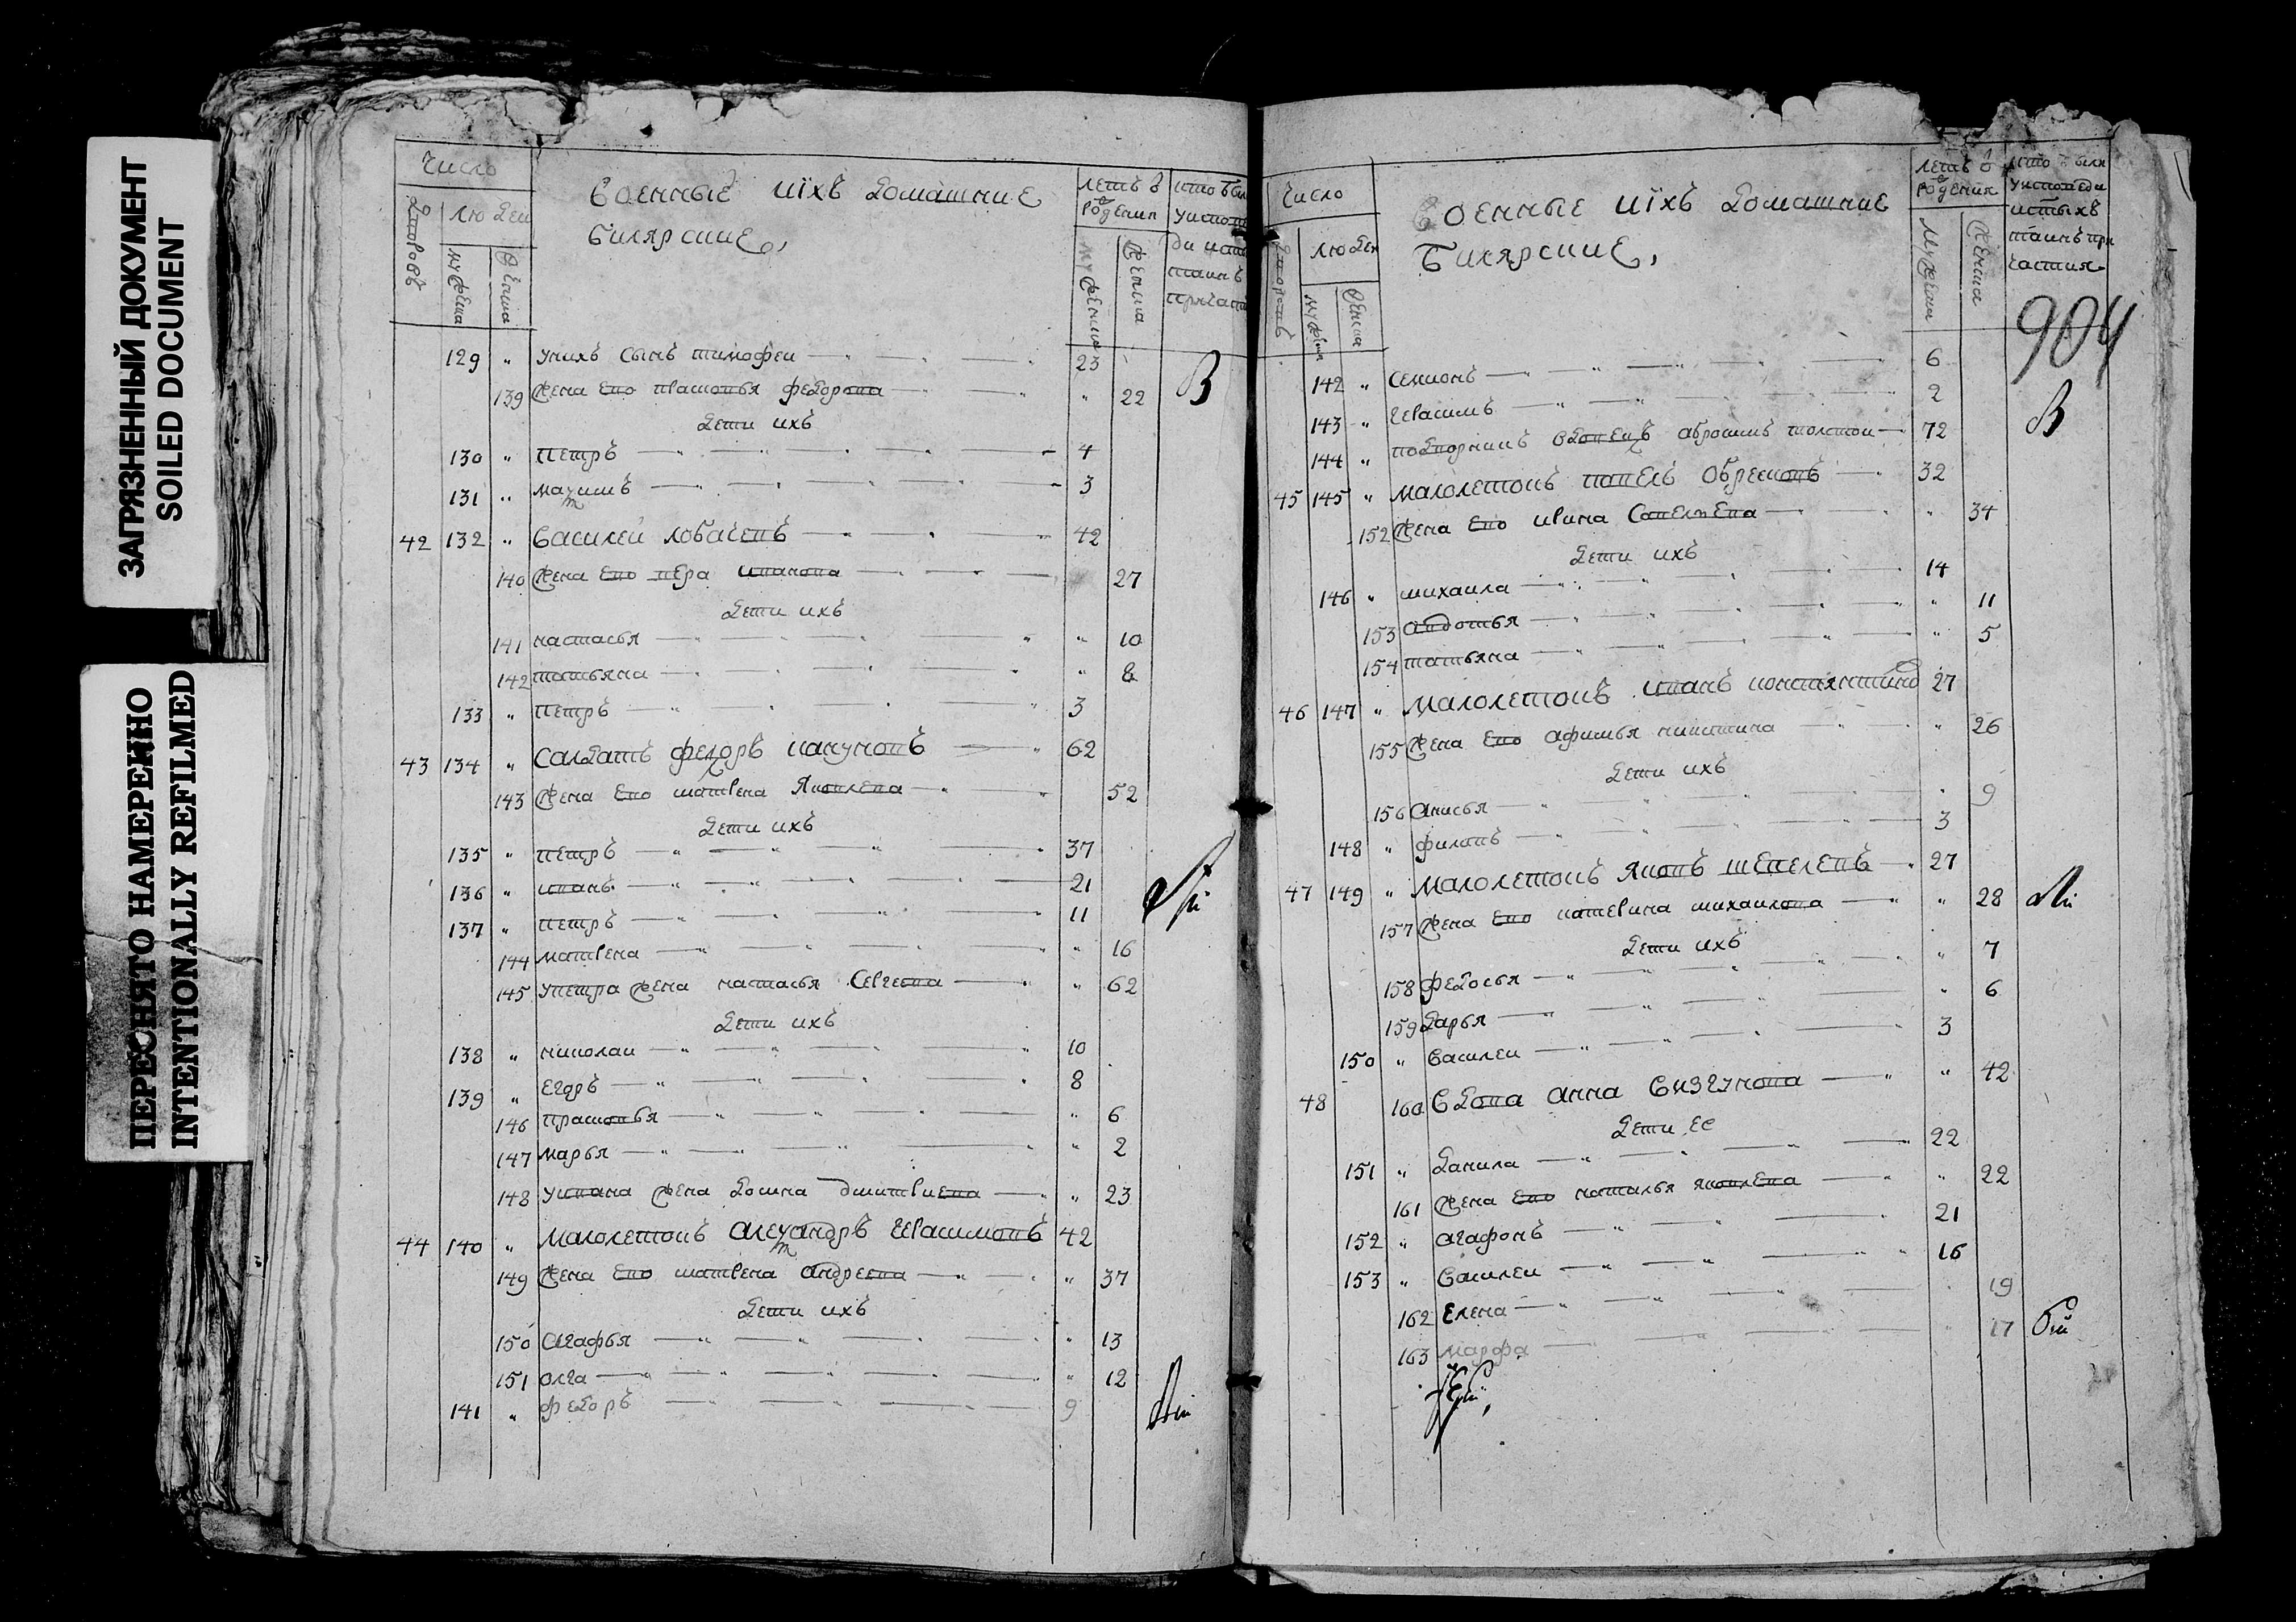 ЗАГРЯЗНЕННЫЙ ДОКУМЕНТ
SOILED DOCUMENT
ПЕРЕСНЯТО НАМЕРЕННО
INTENTIONALLY REFILMED
Число
Дворовъ
Людей
мужеска
женска
Военные иїхъ домашние
билярские,
летъ ѿ рождения
мужеска
женска
129 " унихъ сынъ тимофеи 23
139 жена ево федорова " 22
дети ихъ
130 " петръ 4
131 " маѯимъ 3
42 132 " василеи лобачевъ 42
140 жена ево вера иванова 27
дети ихъ
141 настасья " 10
142 татьяна " 8
133 " петръ 3
43 134 " салдатъ федоръ наумовъ 62
143 жена ево матрена яковлева 52
дети ихъ
135 " петръ 37
136 " иванъ 21
137 " петръ 11
144 матрена " 16
145 упетра жена настасья сергеева " 62
дети ихъ
138 " николаи 10
139 " егоръ 8
146 прасковья " 6
147 марья " 2
148 уивана жена домна дмитриева " 23
44 140 " малолетокъ алеѯандръ герасимовъ 42
149 жена ево матрена андреева " 37
дети ихъ
150 агафья " 13
151 олга " 12
141 " федоръ 9
Число
людеи
мужеска
женска
Военные иїхъ домашние
билярские,
летъ ѿ рождения
мужеска
женска
904
142 " семионъ 6
143 " герасимъ 2
144 " подворникъ вдовецъ аброшимъ толстои 72
45 145 " малолетокъ павелъ обремовъ 32
152 жена ево ирина савельева " 34
дети ихъ
146 " михаила 14
153 авдотья " 11
154 татьяна " 5
46 147 " малолетокъ иванъ константинов 27
155 жена ево афимья никитина " 26
дети ихъ
156 анисья " 9
148 " филипъ 3
47 149 " малолетокъ яковъ шевелевъ 27
157 жена ево катерина михаилова " 28
дети ихъ
158 федосья " 7
159 дарья " 6
150 " василеи 3
48 160 вдова анна визгунова " 42
дети ее
151 " данила 22
161 жена ево наталья яковлева " 22
152 " агафонъ 21
153 " василеи 16
162 елена 19
163 марфа " 17